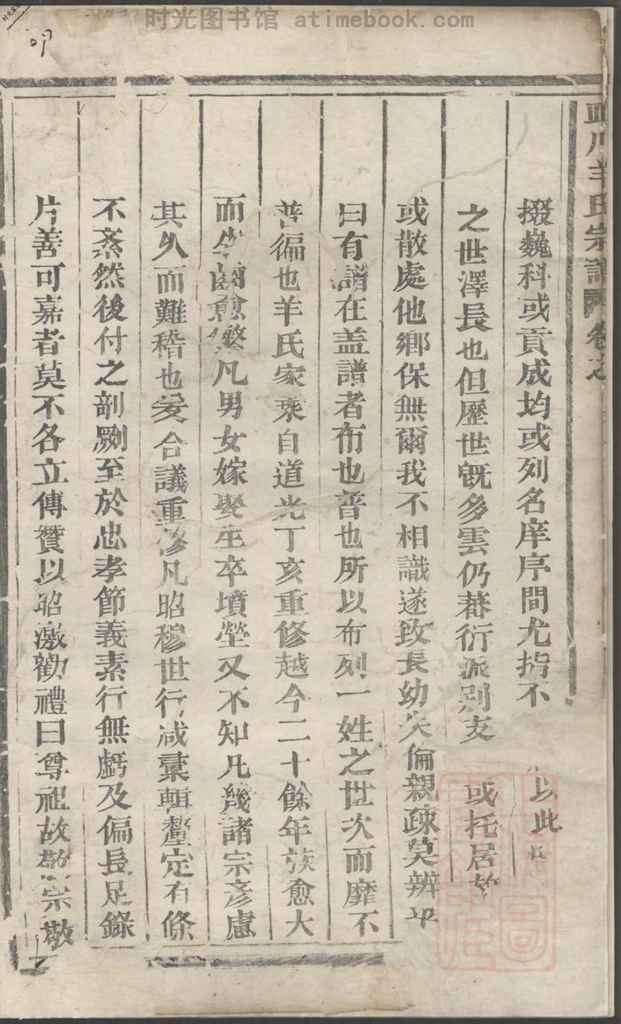 时光图书馆 atimebook.com
川羊氏宗譜 卷之
掇巍科或貢成均或列名庠序間尤指不 以此
之世澤長也但歷世既多雲仍蕃衍派別支 或托居
或散處他鄉保無爾我不相識遂致長幼失倫親疎莫辨
曰有譜在盖譜者布也普也所以布列一姓之世次而靡不
普徧也羊氏家乗自道光丁亥重修越今二十餘年族愈大
而生齒愈繁凡男女嫁娶生卒墳塋又不知凡幾諸宗彥慮
其久而難稽也爰合議重修凡昭穆世行咸彚輯釐定有條
不紊然後付之剞劂至於忠孝節義素行無虧及偏長足錄
片善可嘉者莫不各立傳贊以昭激勸禮曰尊祖故敬宗敬